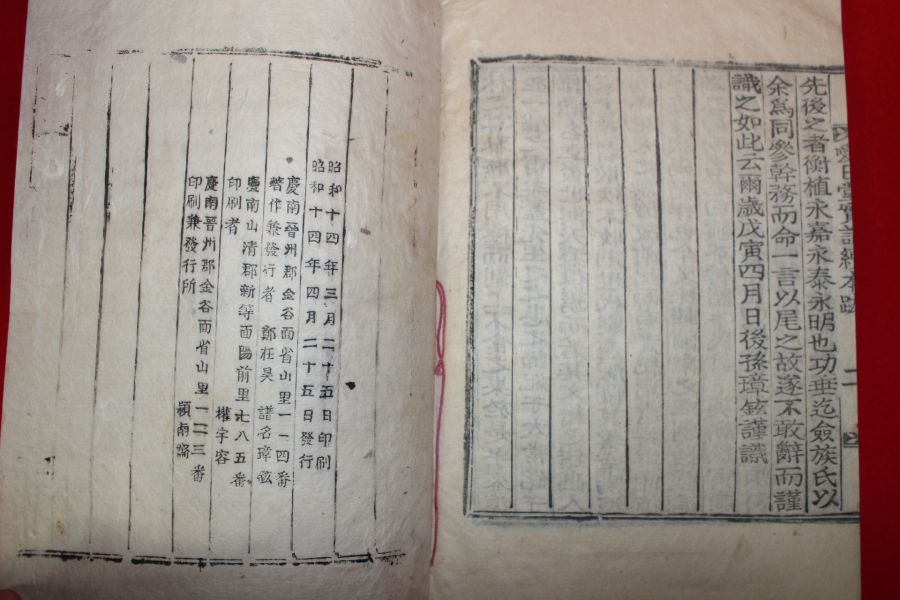 愛日堂實記續本跋 二
先後之者衡植永嘉永泰永明也功垂迄僉族氏以
余爲同參幹務而命一言以尾之故遂不敢辭而謹
識之如此云爾歲戊寅四月日後孫璋鉉謹識
昭和十四年三月二十五日印刷
昭和十四年四月二十五日發行
慶南晉州郡金谷面省山里一一四番
著作兼發行者 鄭在昊 譜名璋鉉
慶南山清郡新等面陽前里七八五番
印刷者 權字容
慶南晉州郡金谷面省山里一二三番
印刷兼發行所 潁南齋